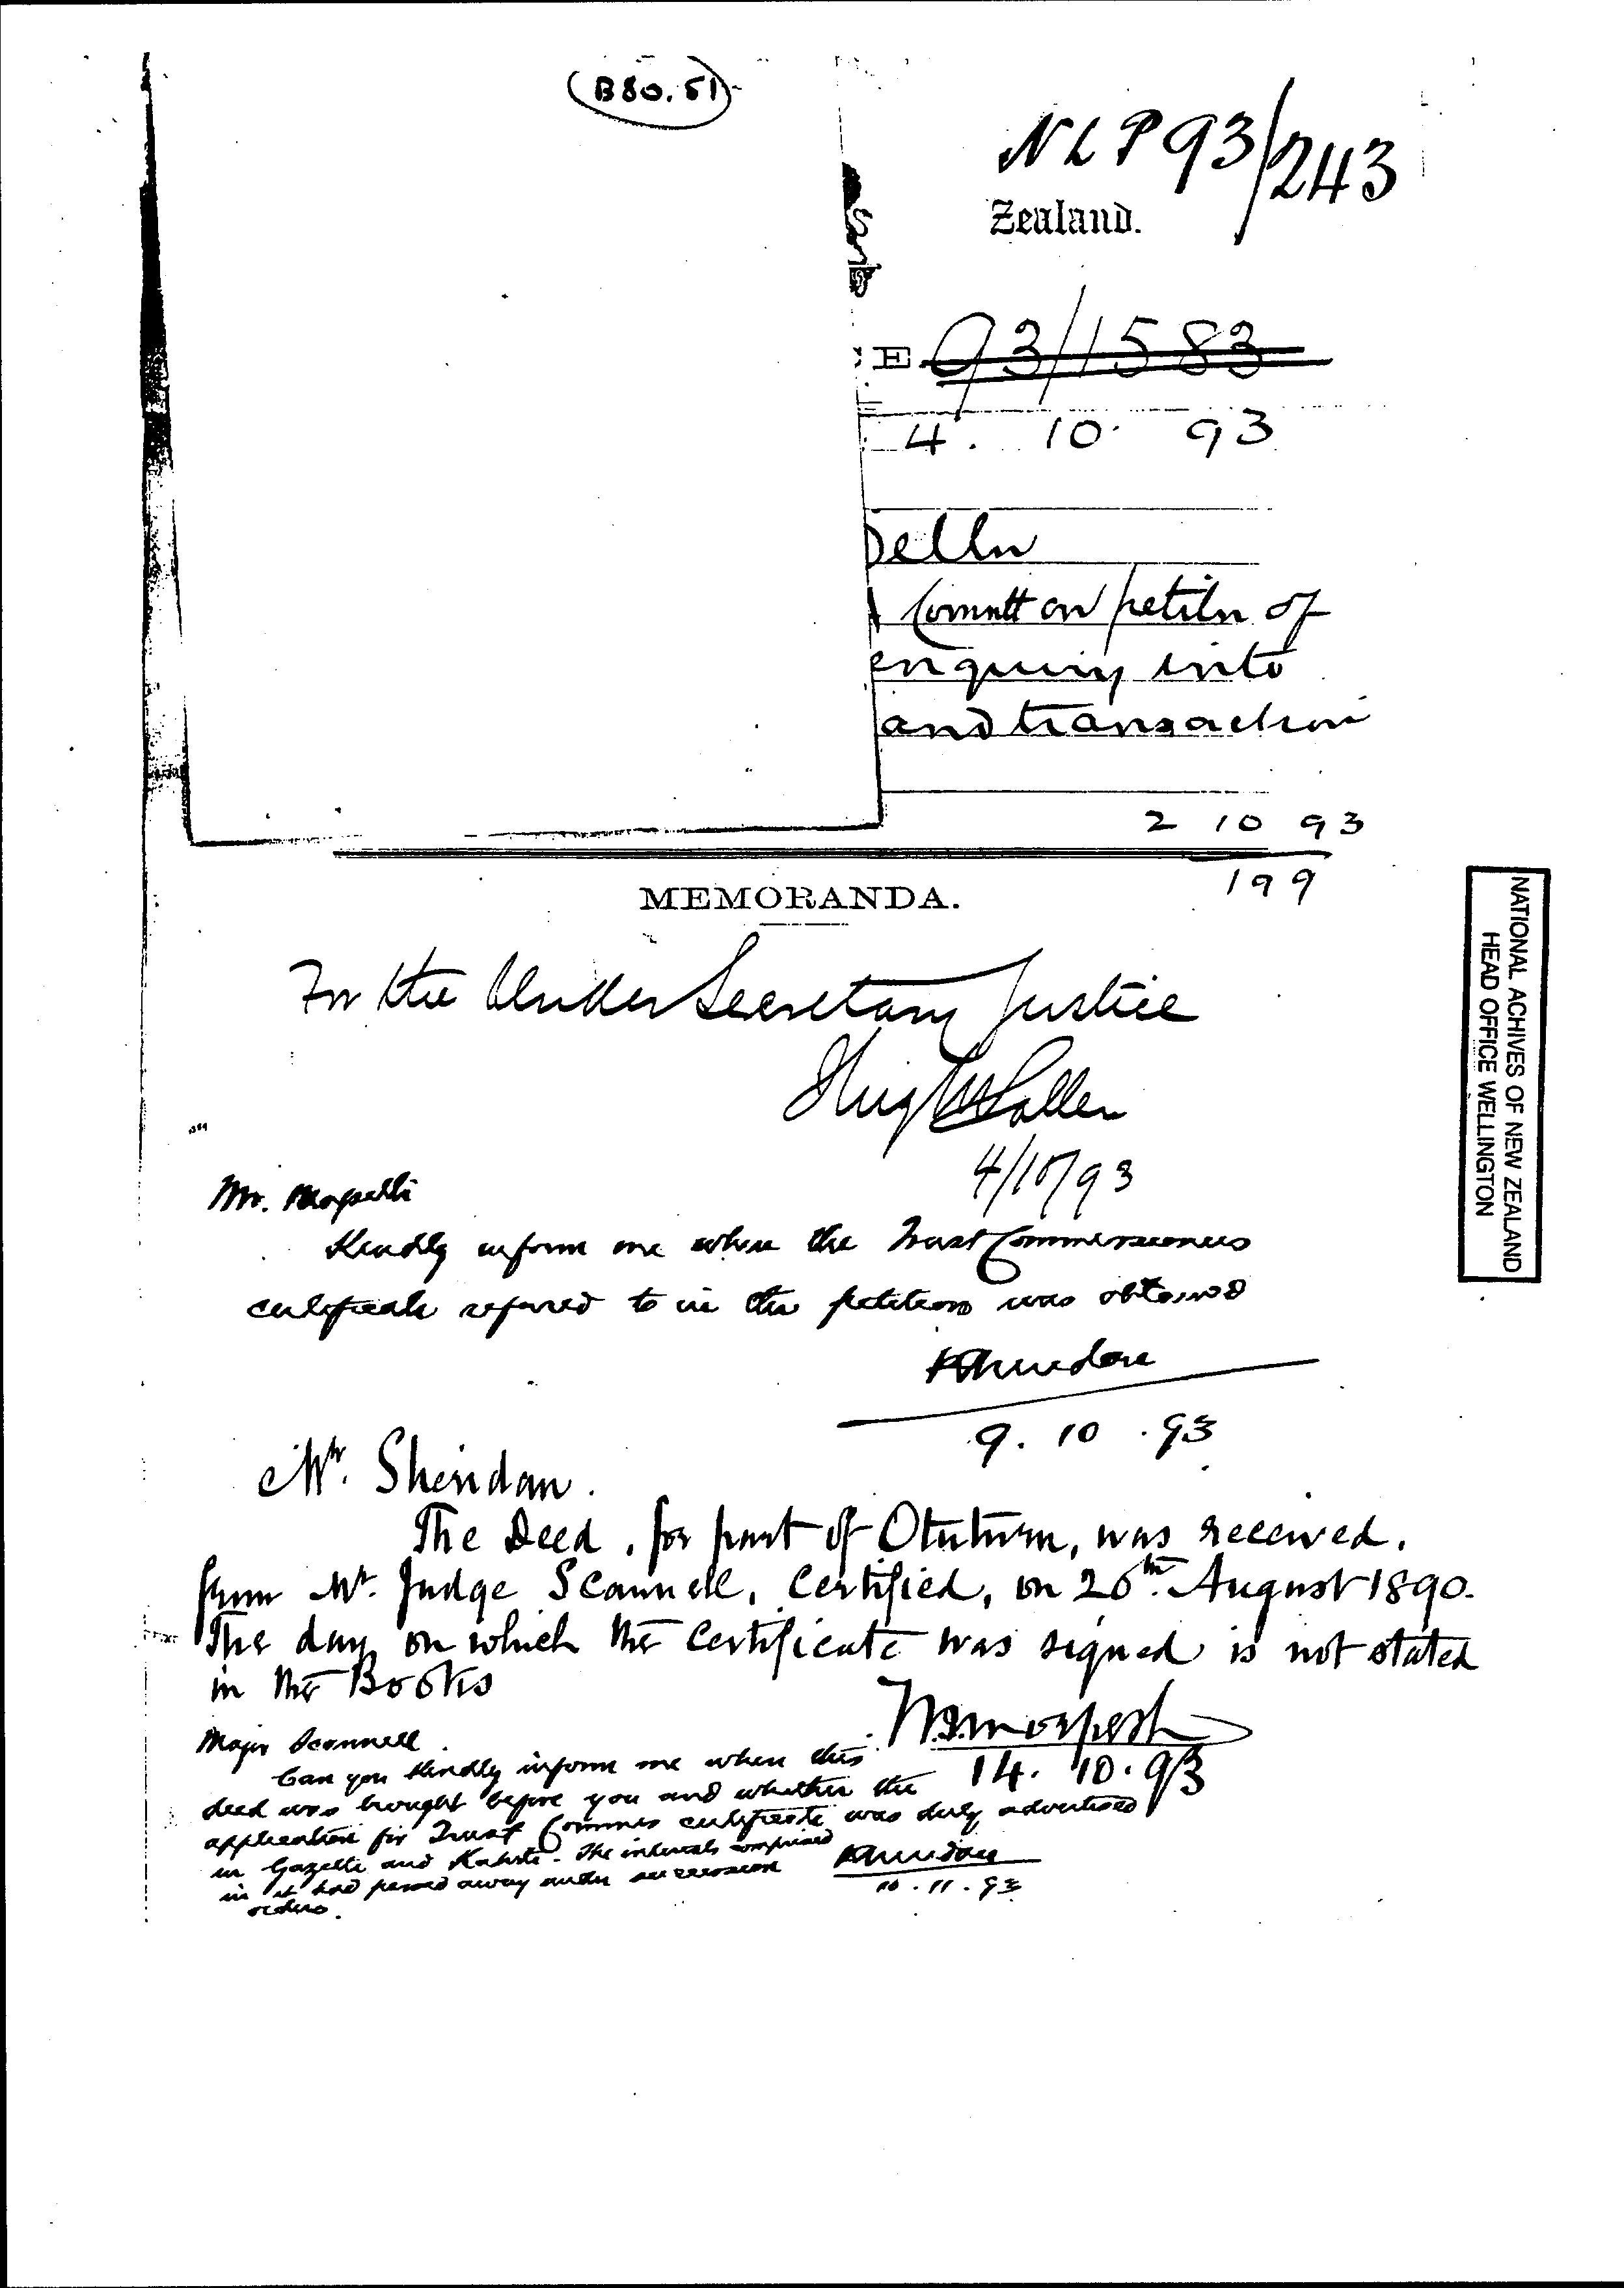 B80.51
NLP 93/243
Zealand.
E 93/1583
4. 10. 93
Committ on petitn of
enquiry into
and transaction
2 10 93
199
MEMORANDA.
For the Under Secretary Justice
4/10/93
Mr.
Kindly inform me when the Trust Commissioners
certificate referred to in the petition was obtained
9. 10. 93
Mr. Sheridan.
The Deed, for part of was received.
from Mr. Judge Scannell, Certified, on 26th August 1890.
The day on which the Certificate was signed is not stated
in the Books
14. 10. 93
Major Scannell
Can you kindly inform me when this
deed was brought before you and whether the
application for Trust Commrs certificate was duly advertised
in Gazette and Kahiti - The interests comprised
in it had passed away under succession
orders.
11. 93
NATIONAL ACHIVES OF NEW ZEALAND
HEAD OFFICE WELLINGTON